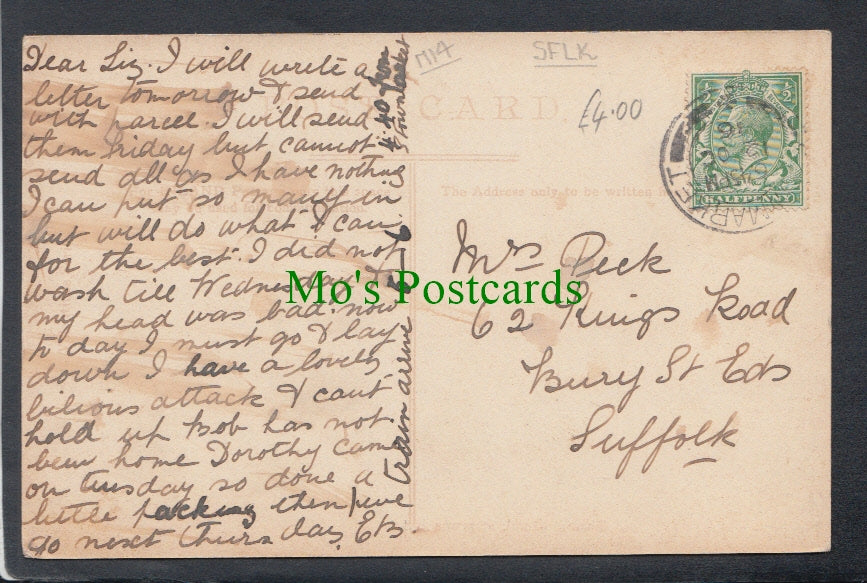 Dear Liz. I will write a
letter tomorrow & send
with parcel. I will send
them Friday but cannot
send all as I have nothing
I can put so many in
but will do what I can
for the best. I did not
wash till Wednesday
my head was bad. now
to day I must go & lay
down I have a lovely
bilious attack & cant
hold up Bob has not
been home Dorothy came
on tuesday so done a
little packing then
go next Thurs day. Ets.
train arrive 5-6
4.40 from
Stowmarket
1714
SFLK
£4.00
POST CARD.
The Address only to be written
½ ½
HALFPENNY
MARKET
Mrs Peck
62 Kings Road
Bury St Eds
Suffolk
Mo's Postcards